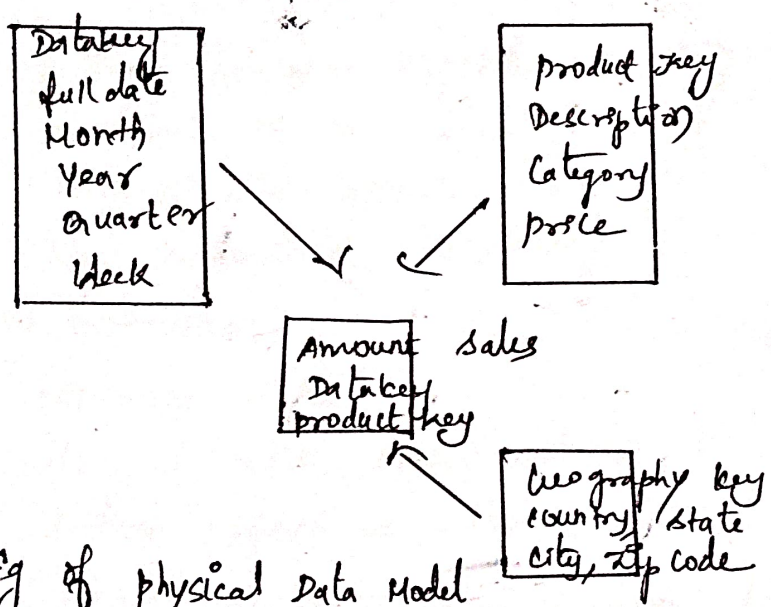 Datakey
full date
Month
Year
Quarter
Week
Product key
Description
Category
price
Amount sales
Datakey
product key
Geography key
country, state
city, zip code
of physical Data Model